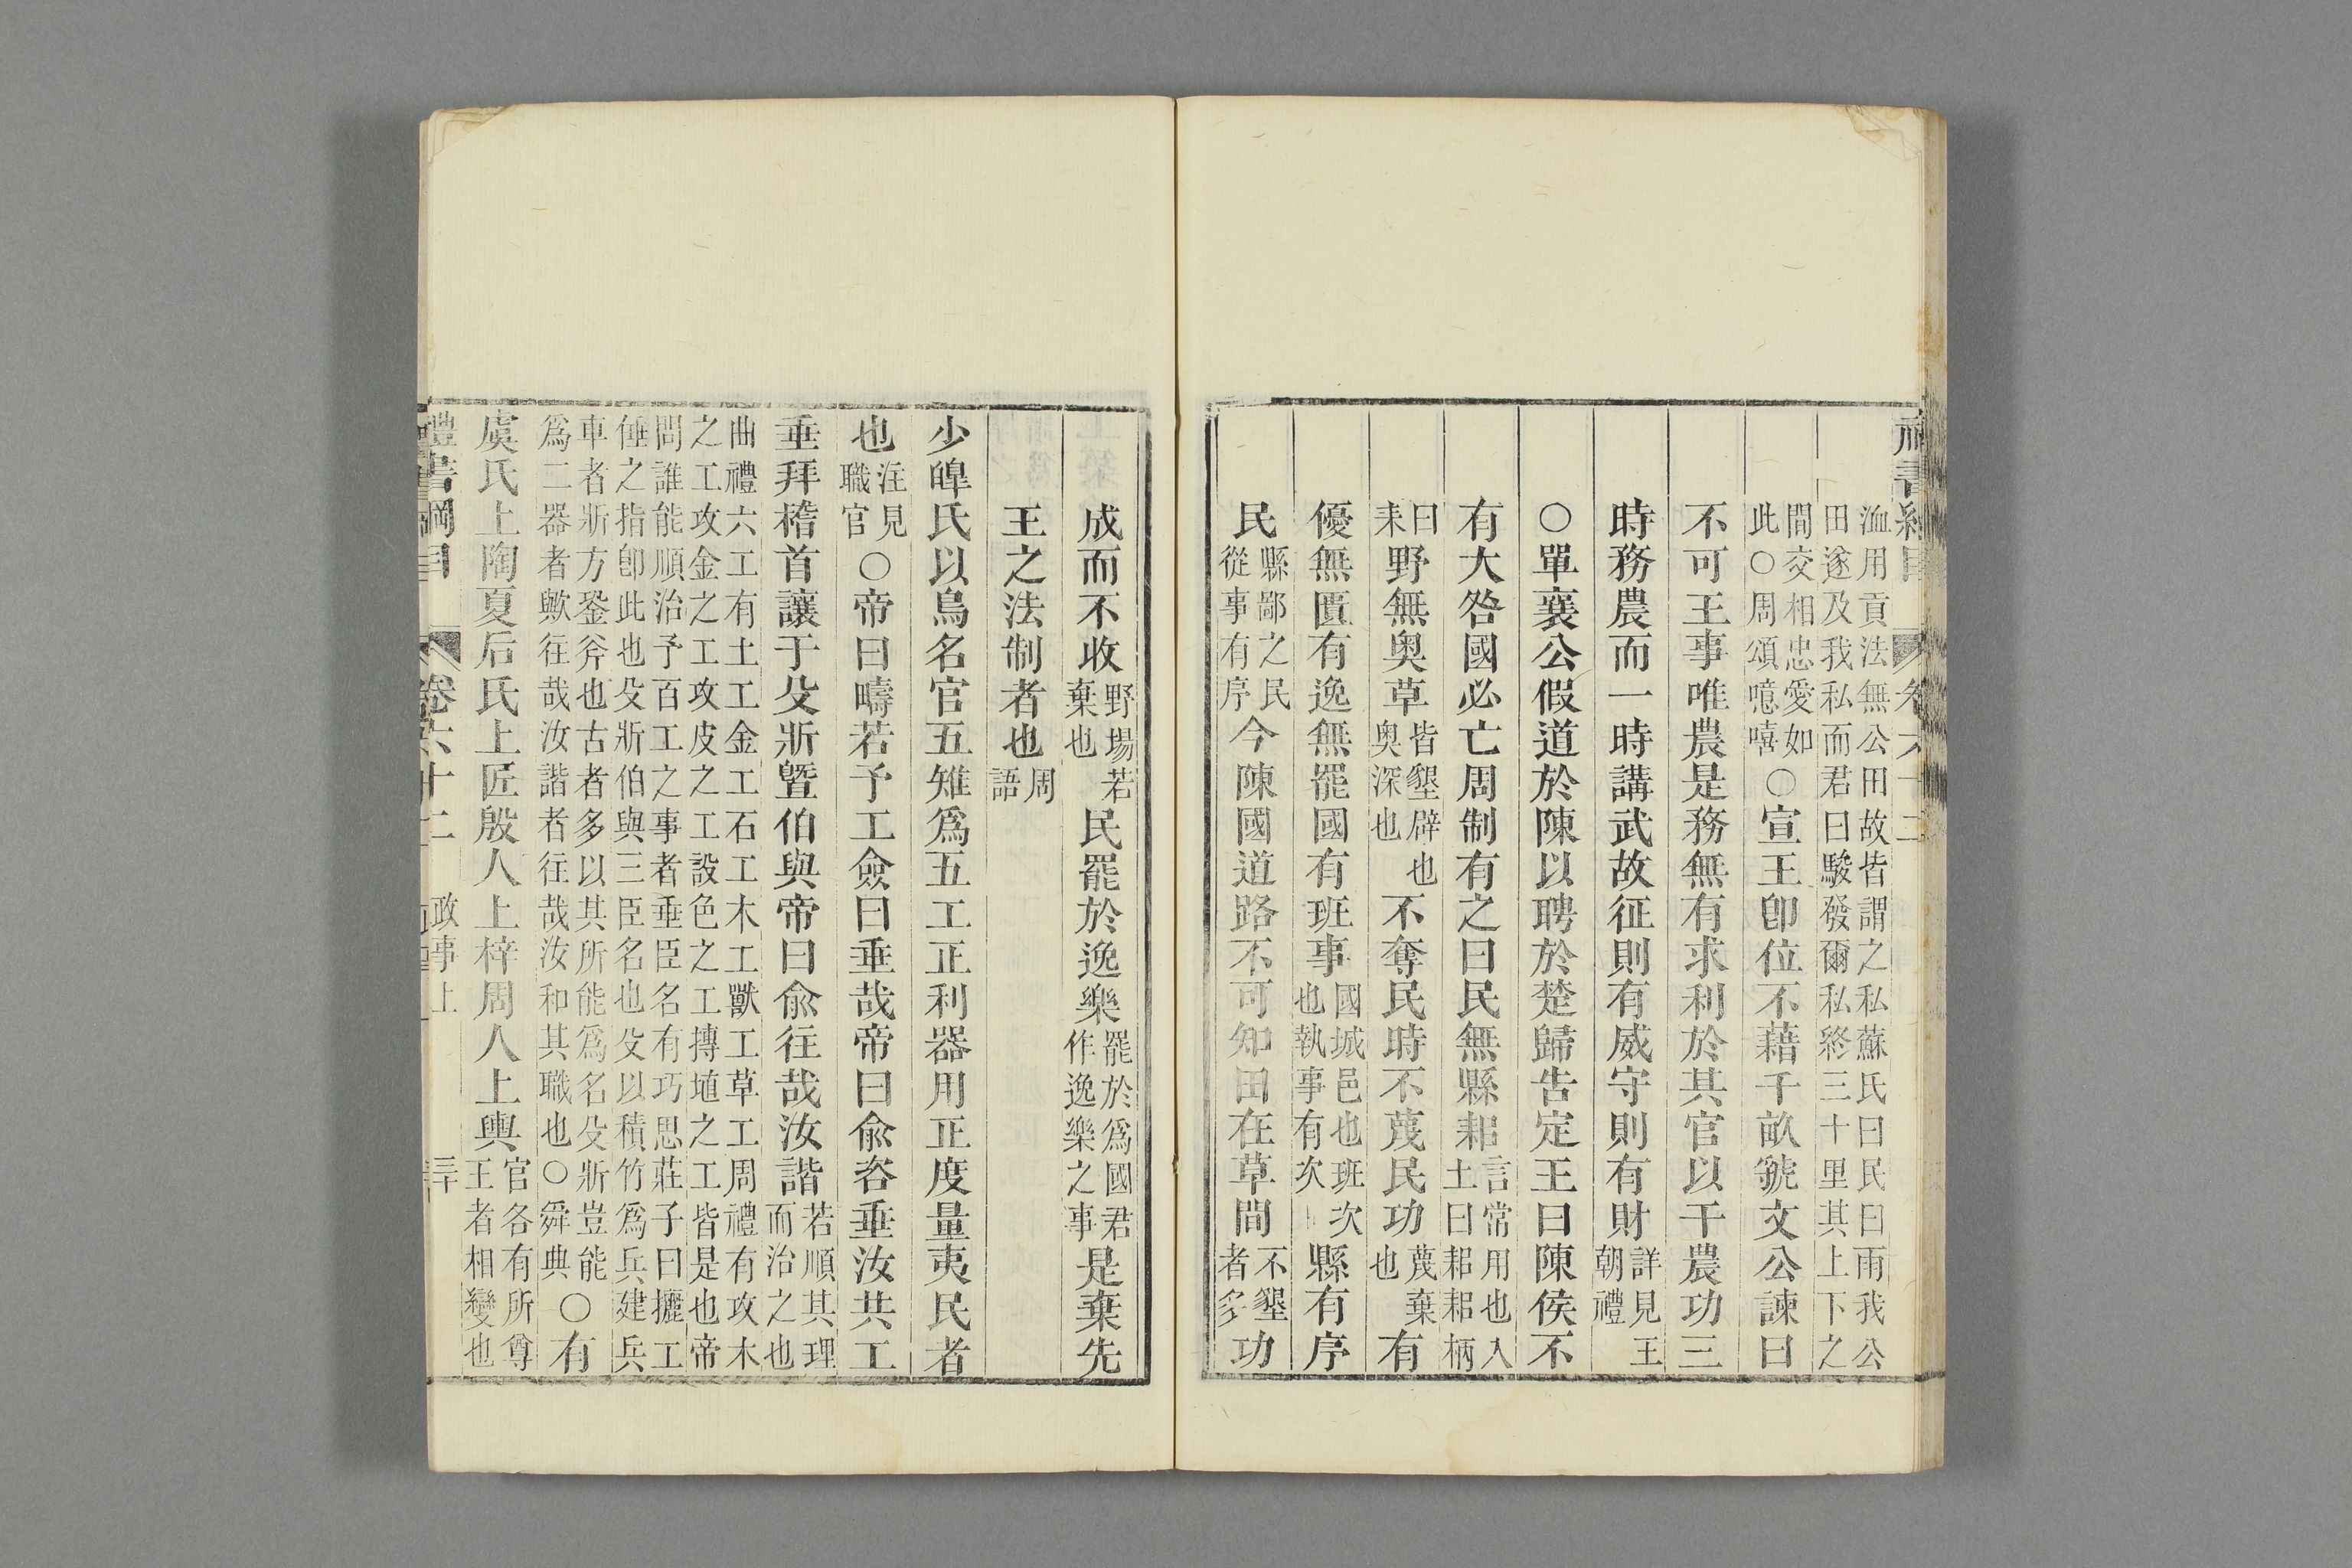 禮書綱目 卷六十二
洫用貢法無公田故皆謂之私蘇氏曰民曰雨我公
田遂及我私而君曰駿發爾私終三十里其上下之
間交相忠愛如此○周頌噫嘻○宣王卽位不藉千畝虢文公諫曰
不可王事唯農是務無有求利於其官以干農功三
時務農而一時講武故征則有威守則有財詳見王朝禮
○單襄公假道於陳以聘於楚歸告定王曰陳侯不
有大咎國必亡周制有之曰民無縣耜言常用也入土曰耜耜柄
曰耒野無奥草皆墾辟也奥深也不奪民時不蔑民功蔑棄也有
優無匱有逸無罷國有班事國城邑也班次也執事有次縣有序
民縣鄙之民從事有序今陳國道路不可知田在草間不墾者多功
成而不收野場若棄也民罷於逸樂罷於爲國君作逸樂之事是棄先
王之法制者也周語
少皞氏以鳥名官五雉爲五工正利器用正度量夷民者
也注見職官○帝曰疇若予工僉曰垂哉帝曰俞咨垂汝共工
垂拜稽首讓于殳斨暨伯與帝曰俞往哉汝諧若順其理而治之也
曲禮六工有土工金工石工木工獸工草工周禮有攻木
之工攻金之工攻皮之工設色之工摶埴之工皆是也帝
問誰能順治予百工之事者垂臣名有巧思莊子曰攦工
倕之指卽此也殳斨伯與三臣名也殳以積竹爲兵建兵
車者斨方銎斧也古者多以其所能爲名殳斨豈能
爲二器者歟往哉汝諧者往哉汝和其職也○舜典○有
虞氏上陶夏后氏上匠殷人上梓周人上輿官各有所尊王者相變也
禮書綱目 卷六十二 政事上 三十